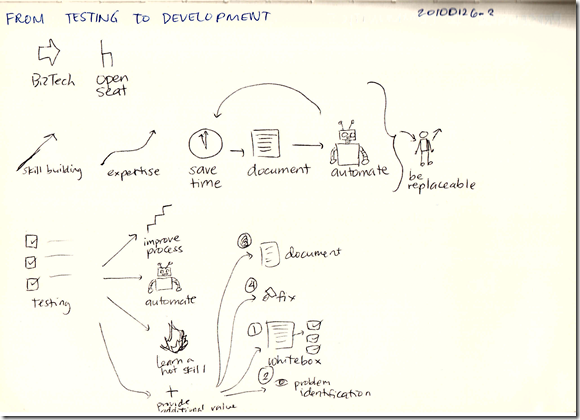 FROM TESTING TO DEVELOPMENT
20100126-2
BizTech
open
seat
skill building
expertise
save
time
document
automate
be
replaceable
testing
improve
process
automate
Learn a
hot skill
+
provide
additional value
3
document
4
fix
1
whitebox
2
problem
identification